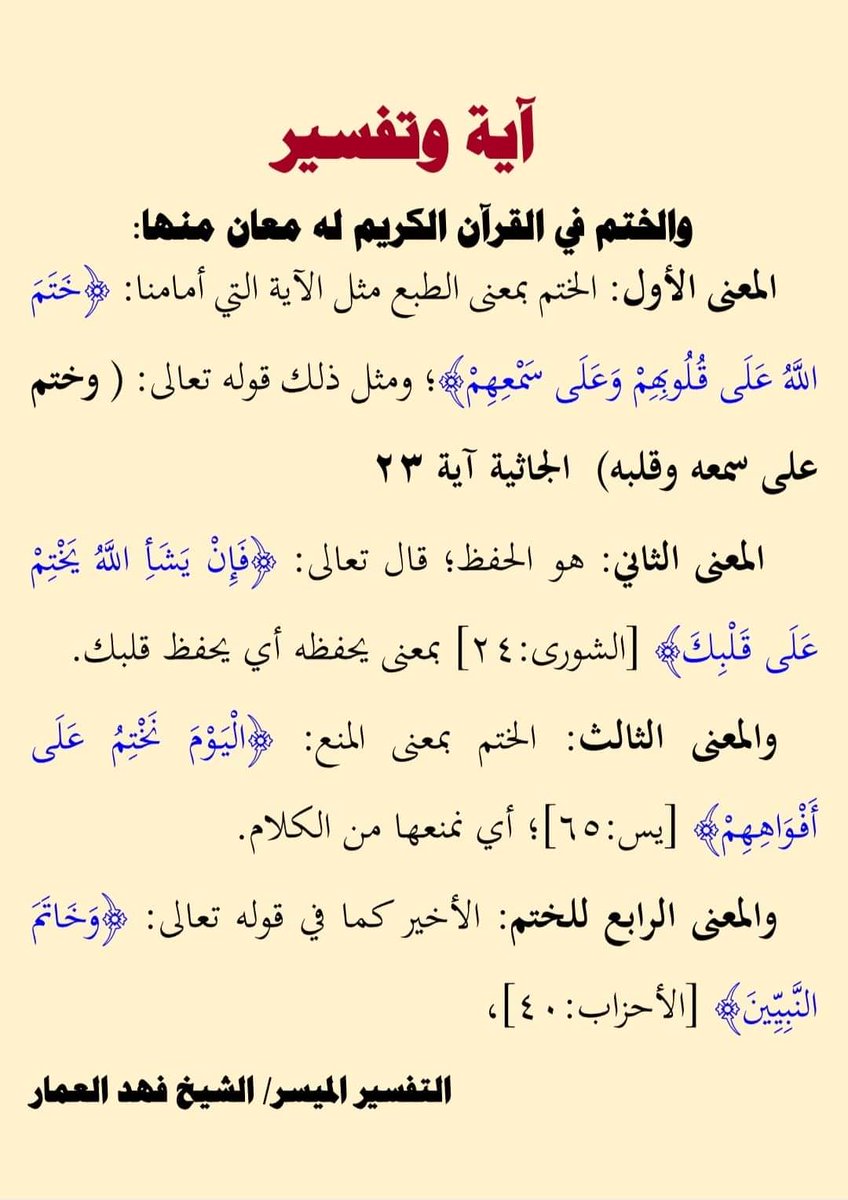 آية وتفسير
والختم في القرآن الكريم له معان منها:
المعنى الأول: الختم بمعنى الطبع مثل الآية التي أمامنا: ﴿خَتَمَ
اللَّهُ عَلَى قُلُوبِهِمْ وَعَلَى سَمْعِهِمْ﴾؛ ومثل ذلك قوله تعالى: ( وختم
على سمعه وقلبه) الجاثية آية ٢٣
المعنى الثاني: هو الحفظ؛ قال تعالى: ﴿فَإِنْ يَشَأِ اللَّهُ يَخْتِمْ
عَلَى قَلْبِكَ﴾ [الشورى:٢٤] بمعنى يحفظه أي يحفظ قلبك.
والمعنى الثالث: الختم بمعنى المنع: ﴿الْيَوْمَ نَخْتِمُ عَلَى
أَفْوَاهِهِمْ﴾ [يس:٦٥]؛ أي نمنعها من الكلام.
والمعنى الرابع للختم: الأخير كما في قوله تعالى: ﴿وَخَاتَمَ
النَّبِيِّينَ﴾ [الأحزاب:٤٠]،
التفسير الميسر/ الشيخ فهد العمار